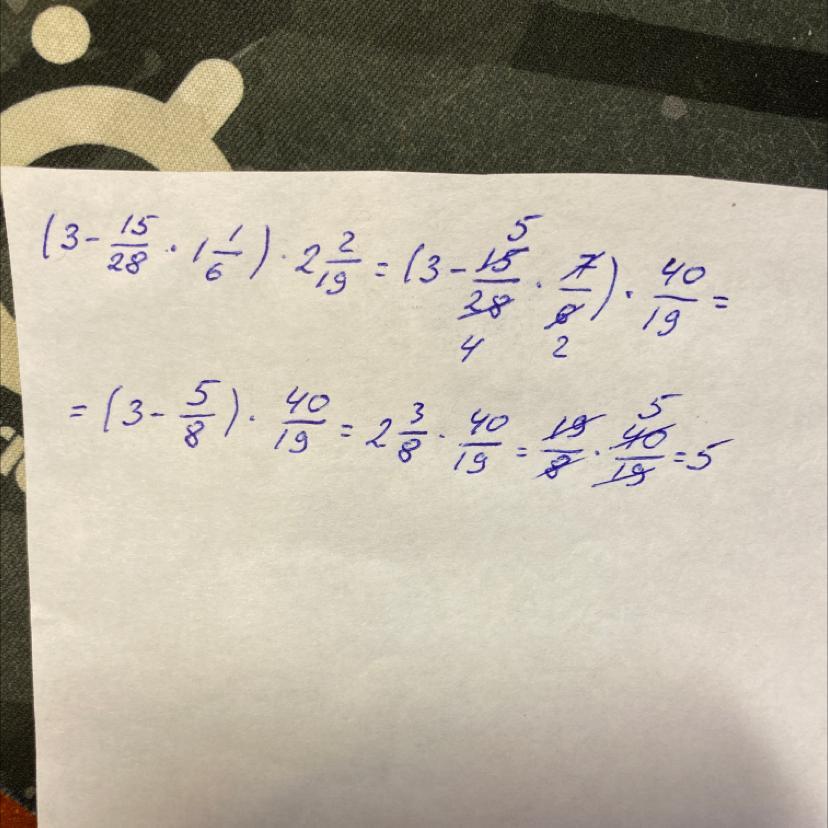 (3 - 15/28 · 1 1/6) · 2 2/19 = (3 - 15/28 · 7/6) · 40/19 =
5
4 2
= (3 - 5/8) · 40/19 = 2 3/8 · 40/19 = 19/8 · 40/19 = 5
5